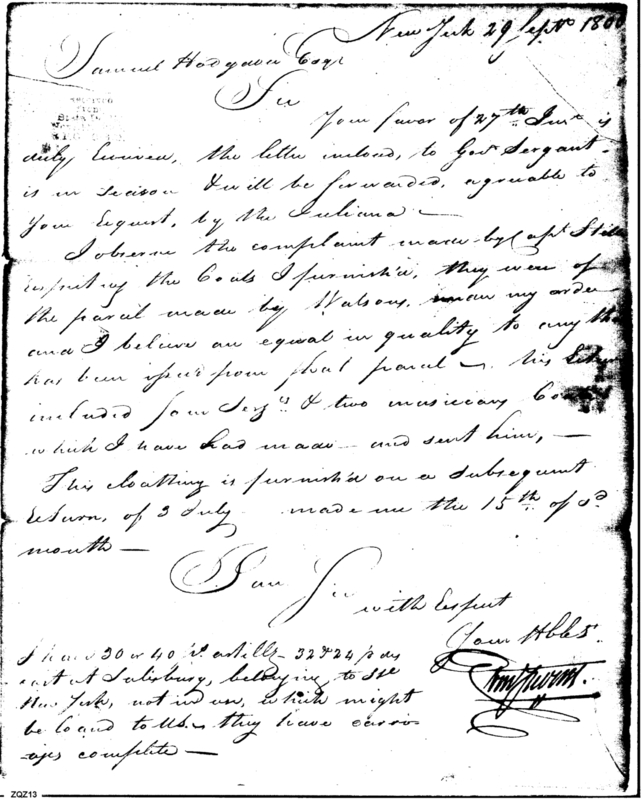 New York 29 Septr 1800
Samuel Hodgdon Esqr
Sir
Your favor of 27th Inst is
duly received, the letter inclosed, to Govr Sergant
is in season & will be forwarded, agreable to
your request, by the Juliana —
I observe the complaint made by Capt Still
respecting the Coats I furnish'd, they were of
the parcel made by Watson, under my order
and I believe are equal in quality to any tha
has been issued from that parcel — his return
included four Serjts & two musicians Coats
which I have had made — and sent him, —
This cloathing is furnish'd on a subsequent
return, of 3 July made me the 15th of sd
month —
I am Sir
with respect
Your Hble St.
I have 30 or 40 ps artilly — 32 & 24 pdrs
cast at Salisbury, belonging to Ste
New York, not in use, which might
be loand to US. they have carri
ages complete —
ZQZ13